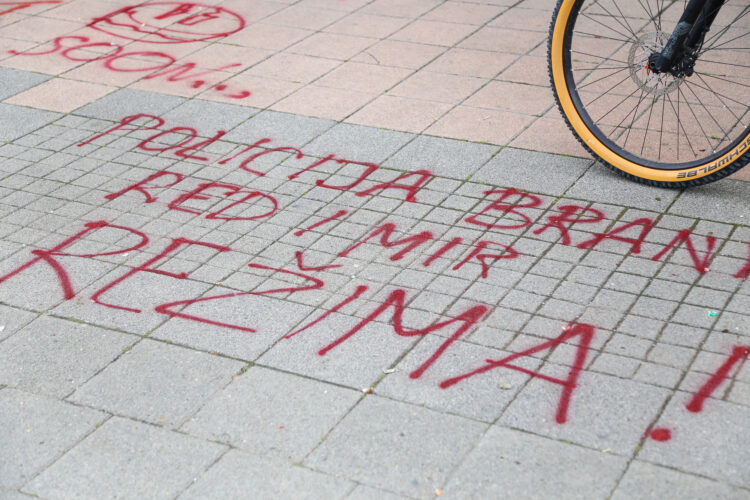 SOON...
POLICIJA BRANI
RED I MIR
REŽIMA!
SCHWALBE